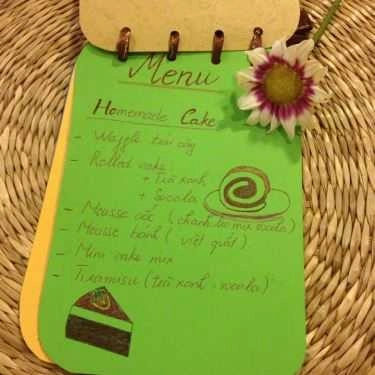 Menu
Homemade Cake
- Waffle trái cây
- Rolled cake
+ Trà xanh
+ Socola
- Mousse cốc (chanh leo mix socola)
- Mousse bánh (việt quất)
- Mini cake mix
- Tiramisu (trà xanh, socola)